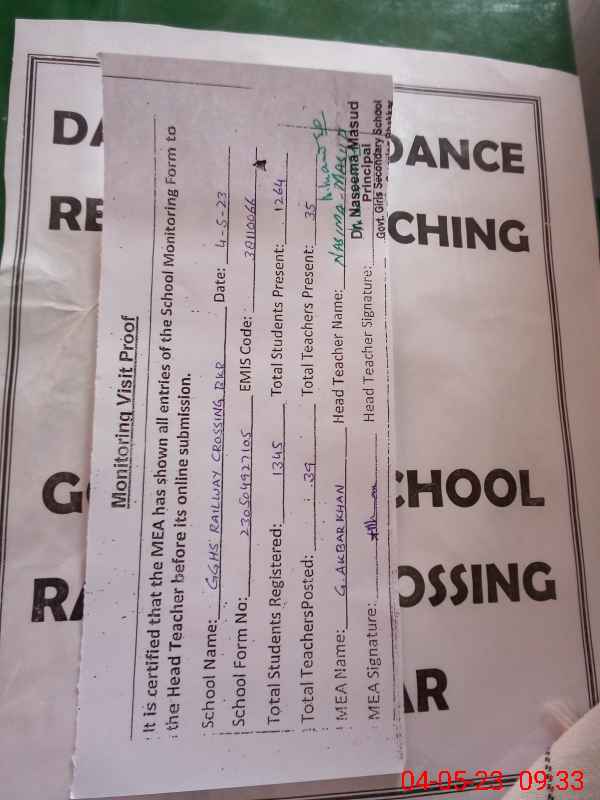 Monitoring Visit Proof
It is certified that the MEA has shown all entries of the School Monitoring Form to
the Head Teacher before its online submission.
School Name: GGHS RAILWAY CROSSING BKR Date: 4-5-23
School Form No: 230504927105 EMIS Code: 30110066
Total Students Registered: 1345 Total Students Present: 1264
Total TeachersPosted: 39 Total Teachers Present: 35
MEA Name: G. AKBAR KHAN Head Teacher Name: NASIMA-MASUD
MEA Signature: Head Teacher Signature:
Dr. Naseema Masud
Principal
Govt. Girls Secondary School
DA DANCE
RE CHING
G CHOOL
RA OSSING
AR
04-05-23 09:33